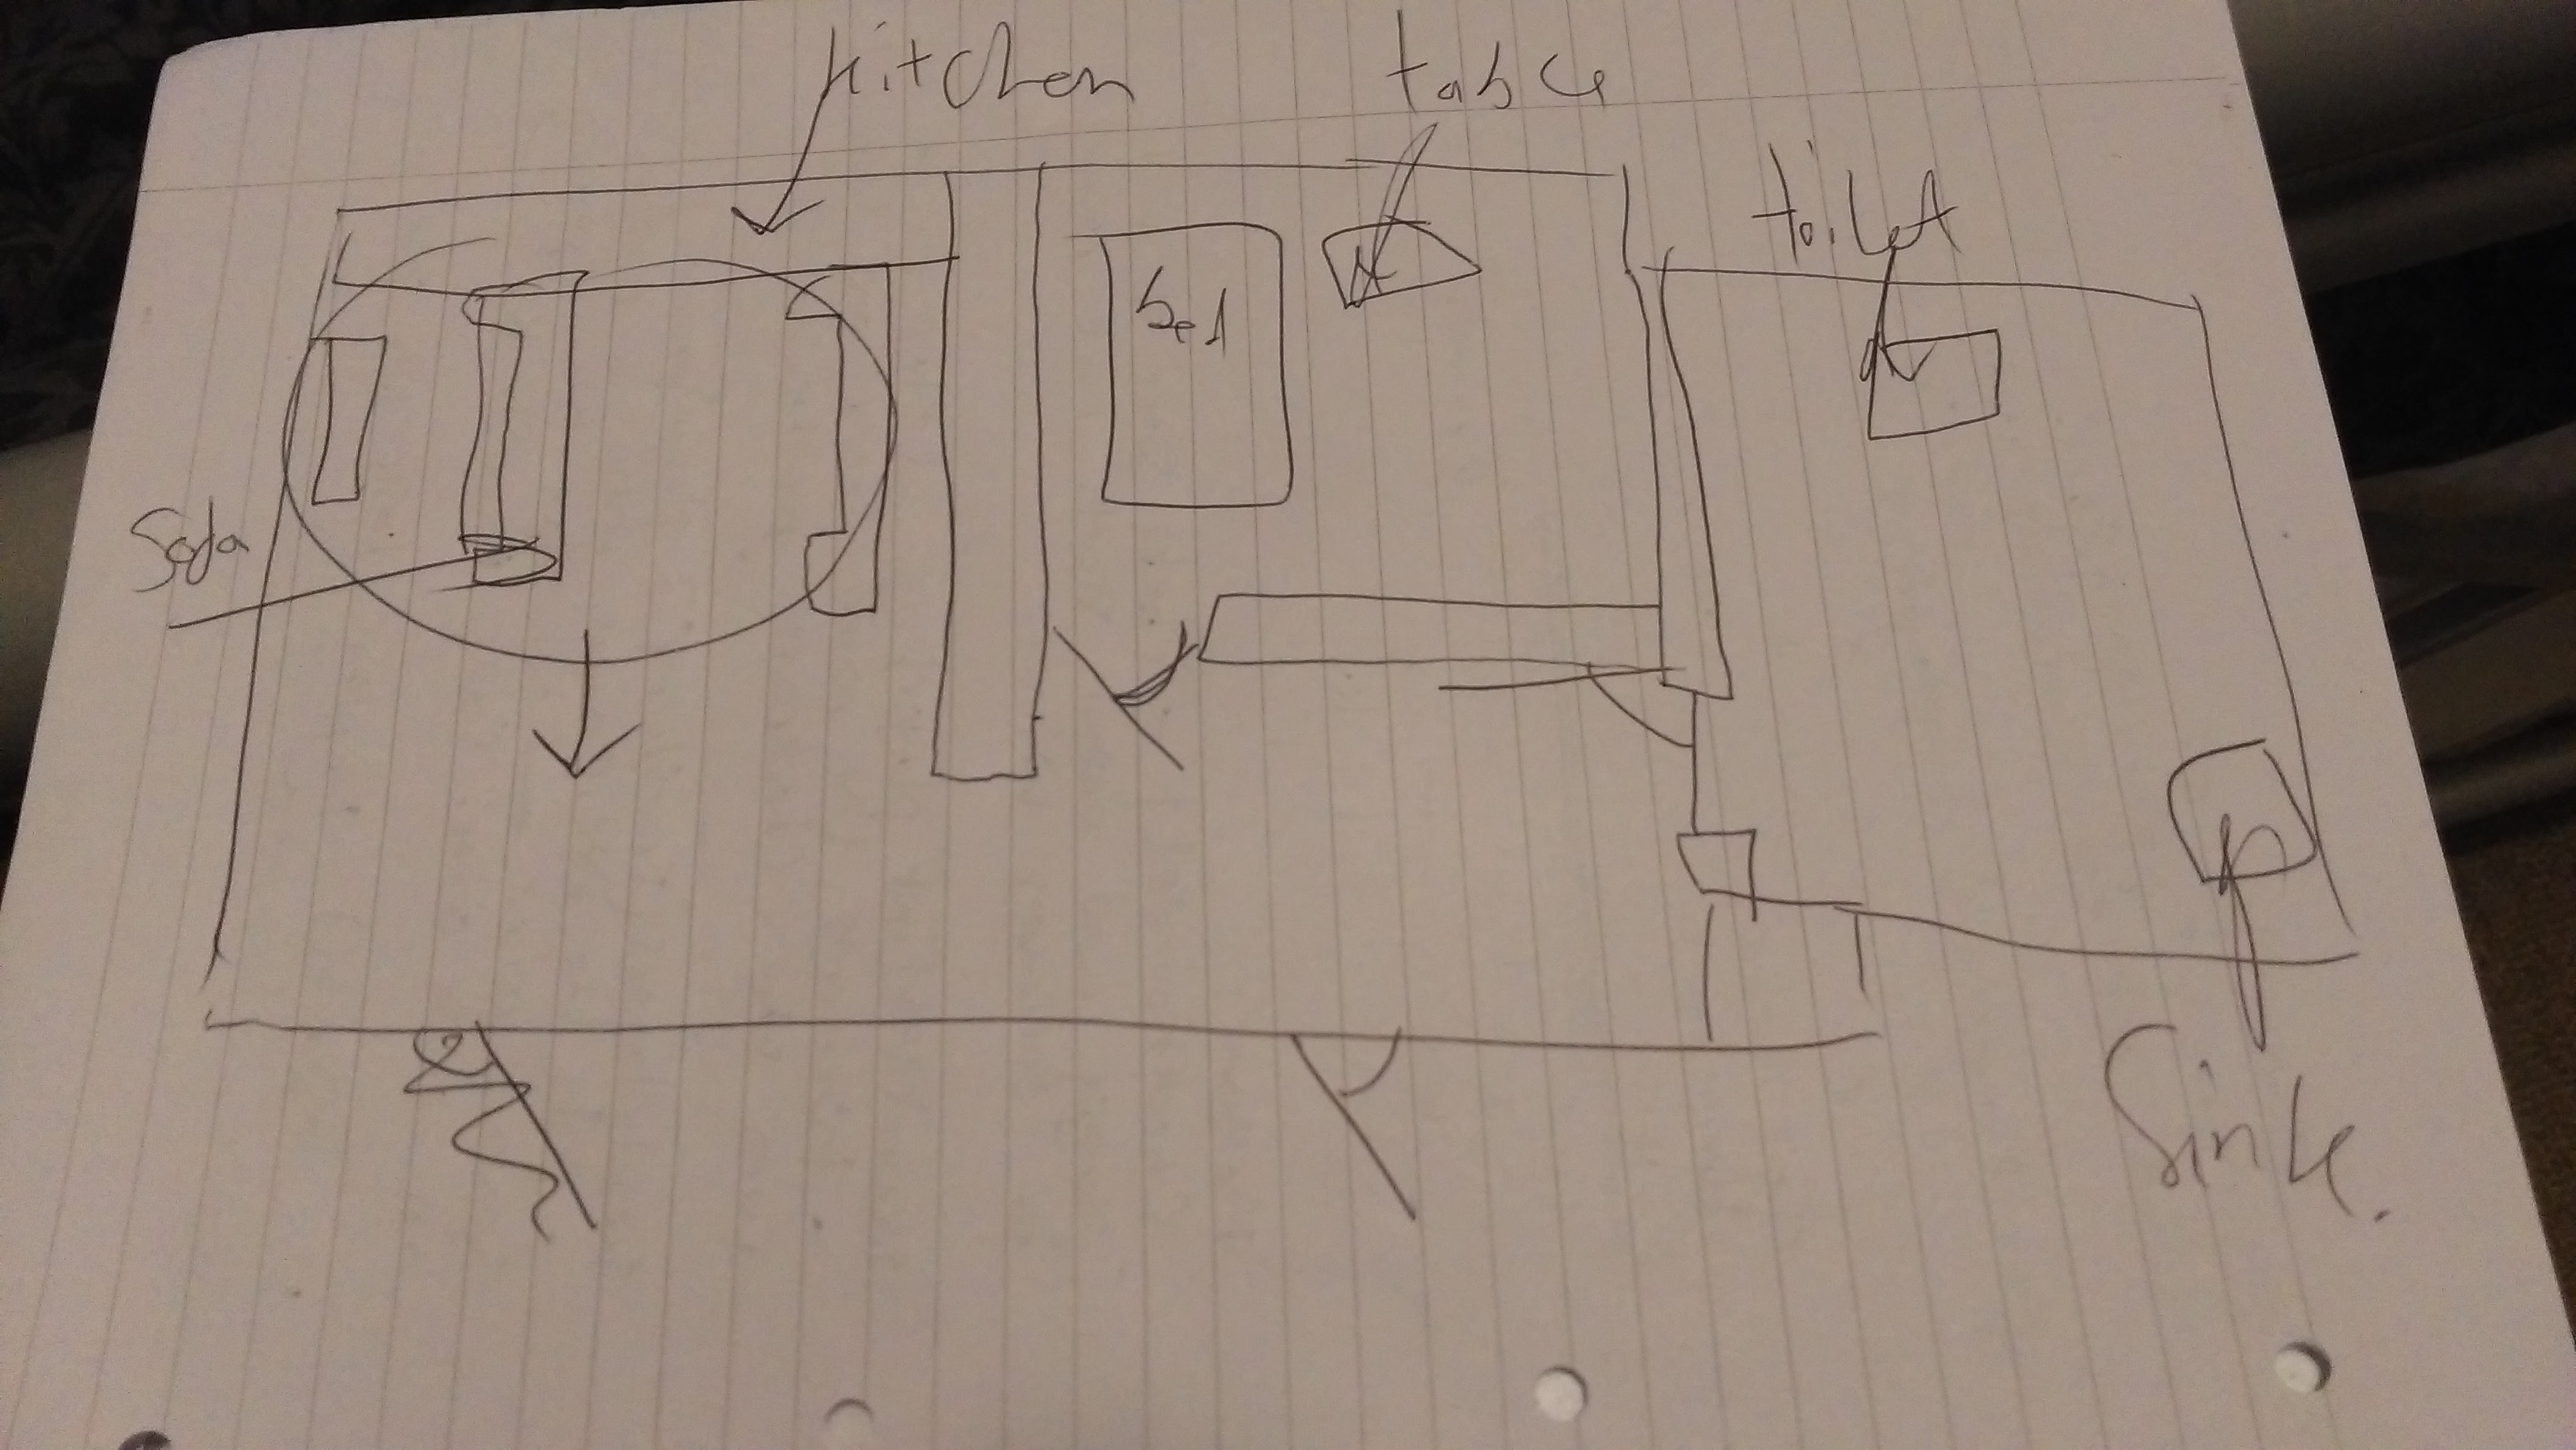 kitchen
table
toilet
bed
Sofa
Sink.